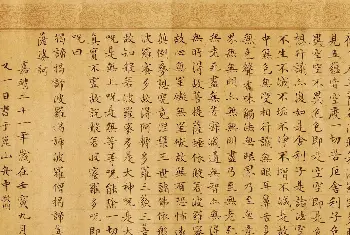 見五蘊皆空度一切苦厄舍利子色
異空空不異色色即是空空即是
想行識亦復如是舍利子是諸法空
不生不滅不垢不淨不增不減是故
中無色無受想行識無眼耳鼻舌
無色聲香味觸法無眼界乃至無
界無無明亦無無明盡乃至無老死
無老死盡無苦集滅道無智亦無
無所得故菩提薩埵依般若波羅蜜
故心無罣礙無罣礙故無有恐怖遠
顛倒夢想究竟涅槃三世諸佛依般
波羅蜜多故得阿耨多羅三藐三菩
故知般若波羅蜜多是大神咒是大
咒是無上咒是無等等咒能除一切
真實不虛故說般若波羅蜜多咒即
咒曰
揭諦揭諦波羅揭諦波羅僧揭諦
薩婆訶
嘉靖二十一年歲在壬寅九月
又一日書于崑山舟中徵明